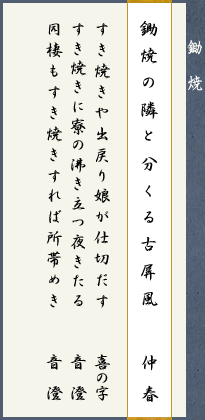 鋤焼
鋤焼の隣と分くる古屏風 仲春
すき焼きや出戻り娘が仕切だす 喜の字
すき焼きに寮の沸き立つ夜きたる 音澄
同棲もすき焼きすれば所帯めき 音澄